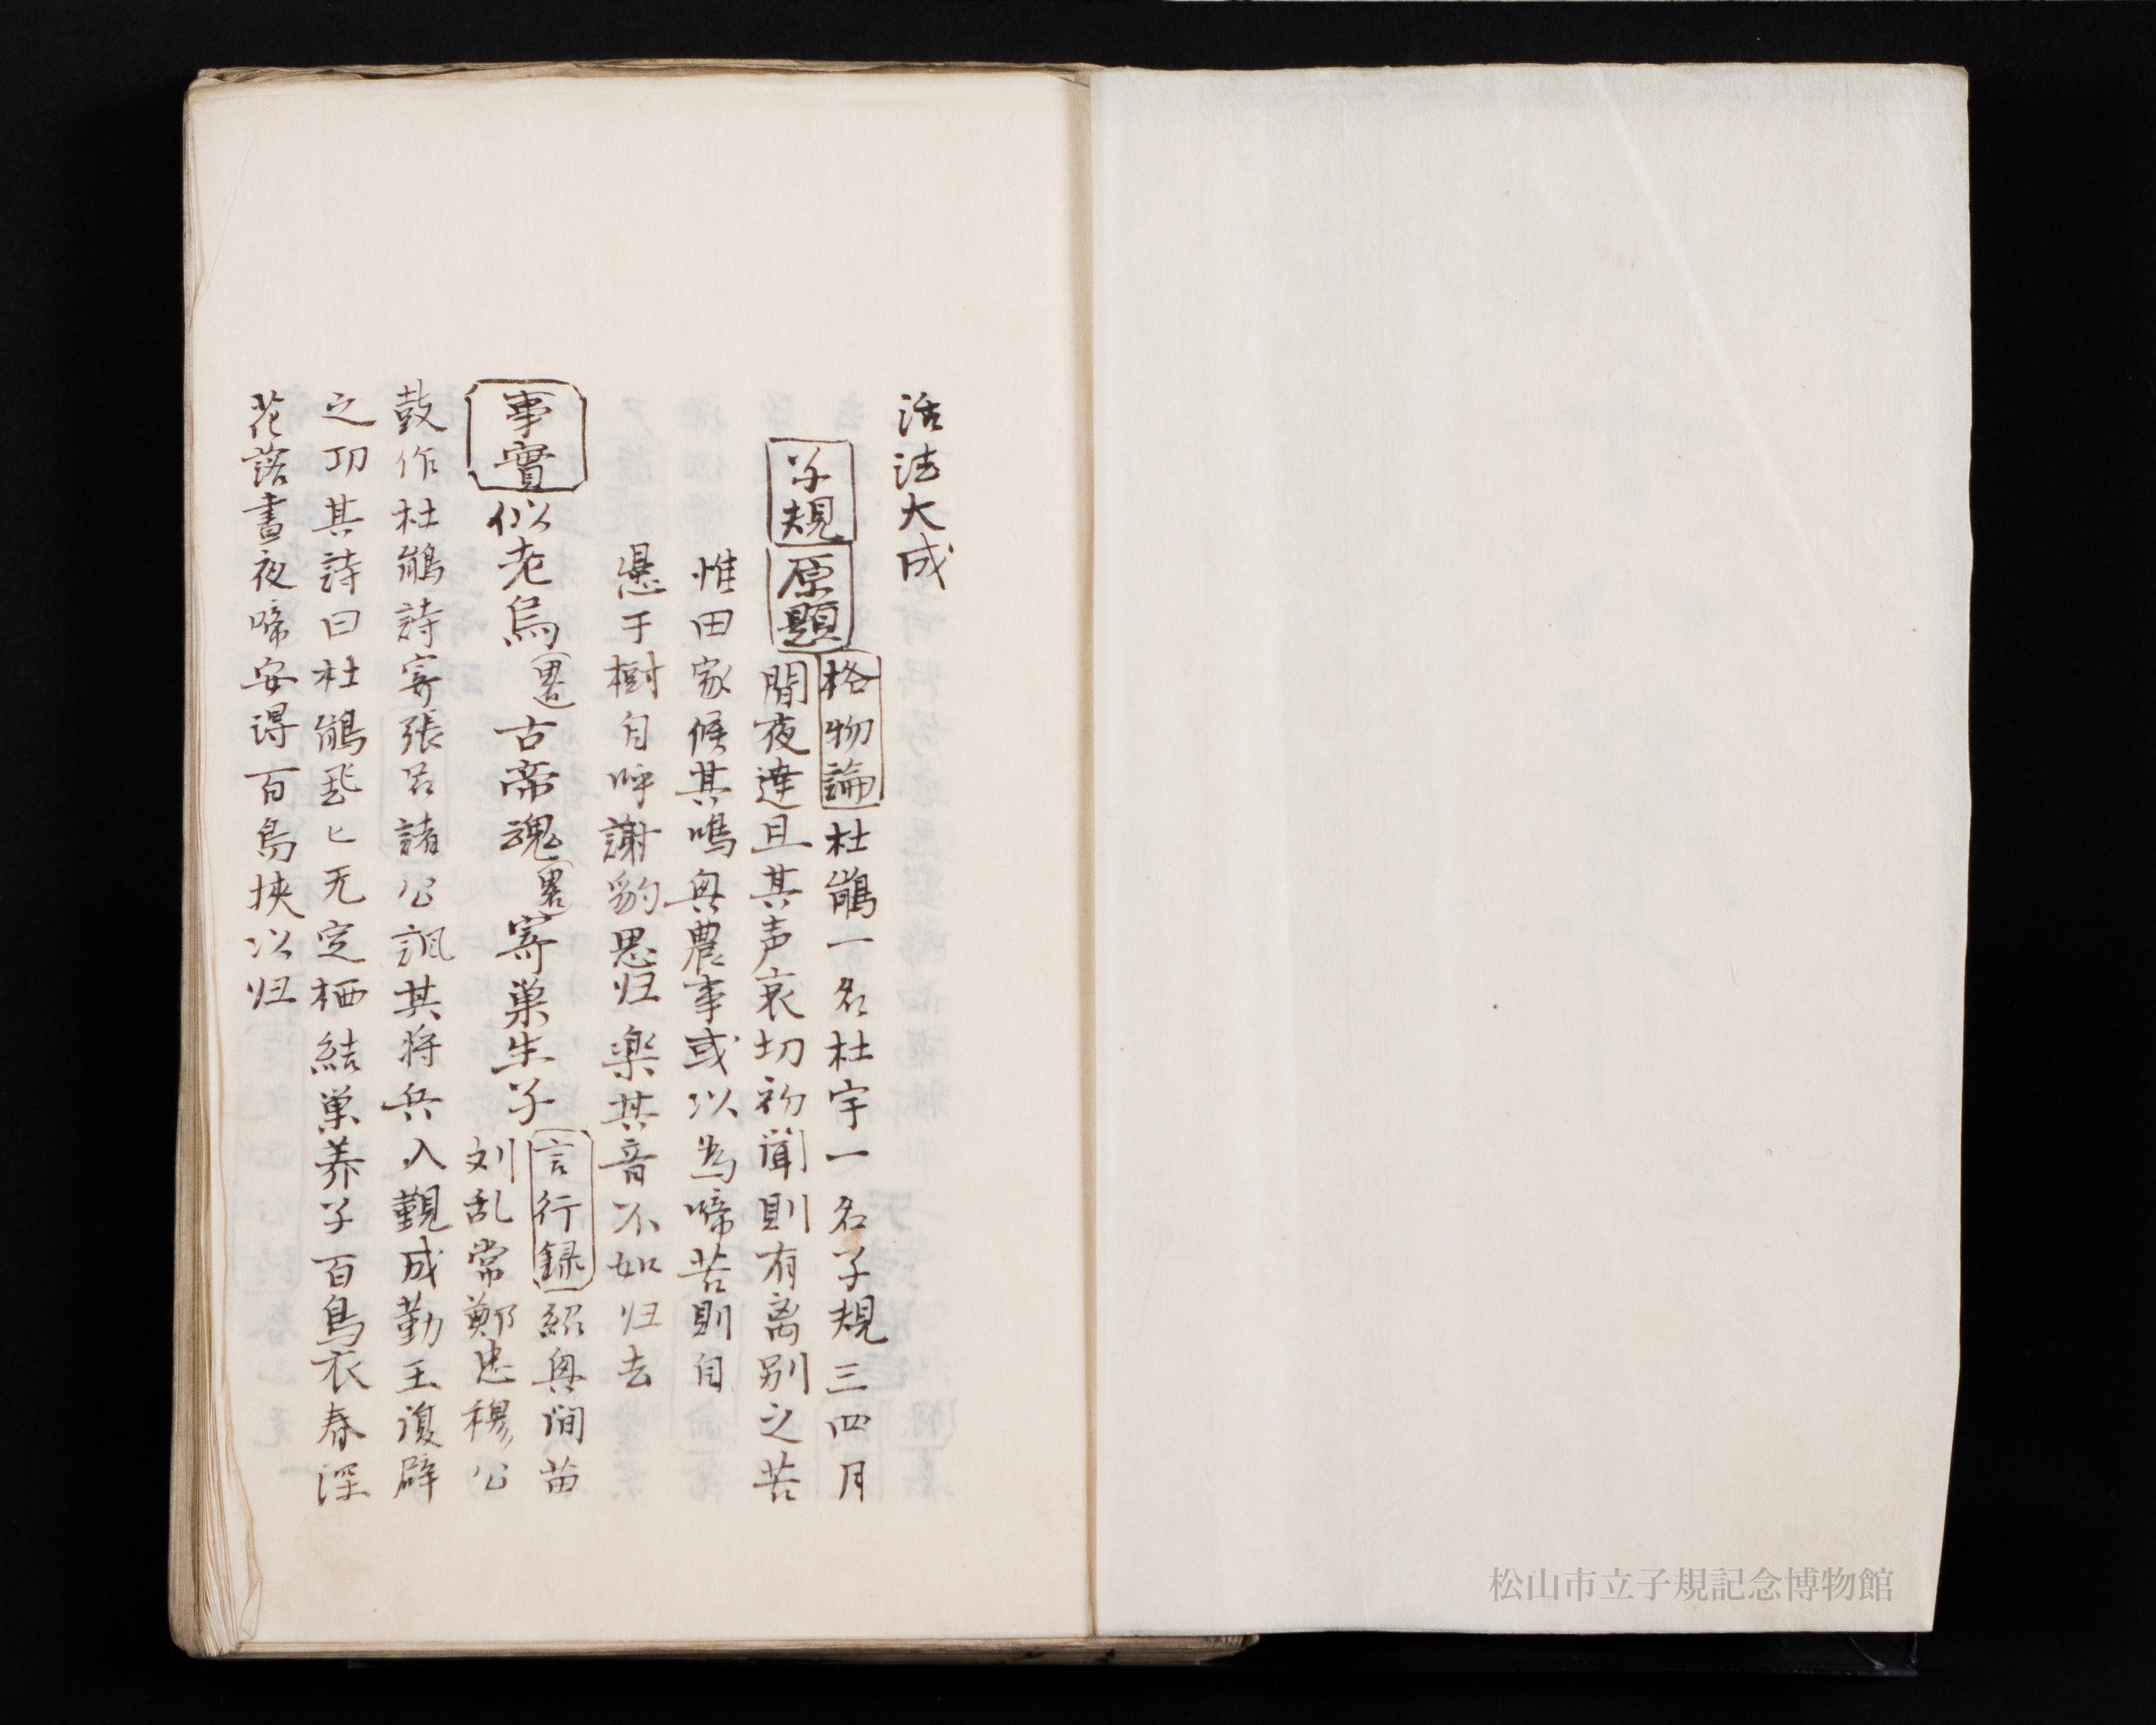 活法大成
子規 原題 格物論 杜鵑一名杜宇一名子規三四月
間夜達旦其声哀切初聞則有离別之苦
惟田家候其鳴興農事或以為啼苦則自
懸于樹自呼謝豹思归楽其音不如归去
事實 似老烏（畧）古帝魂（畧）寄巣生子 言行録 紹興間苗
刘乱常鄭忠穆公
鼓作杜鵑詩寄張呂諸公諷其将兵入觐成勤王復辟
之功其詩曰杜鵑飛ヒ无定栖結巣养子百鳥衣春深
花落晝夜啼安得百鳥挾以归
松山市立子規記念博物館